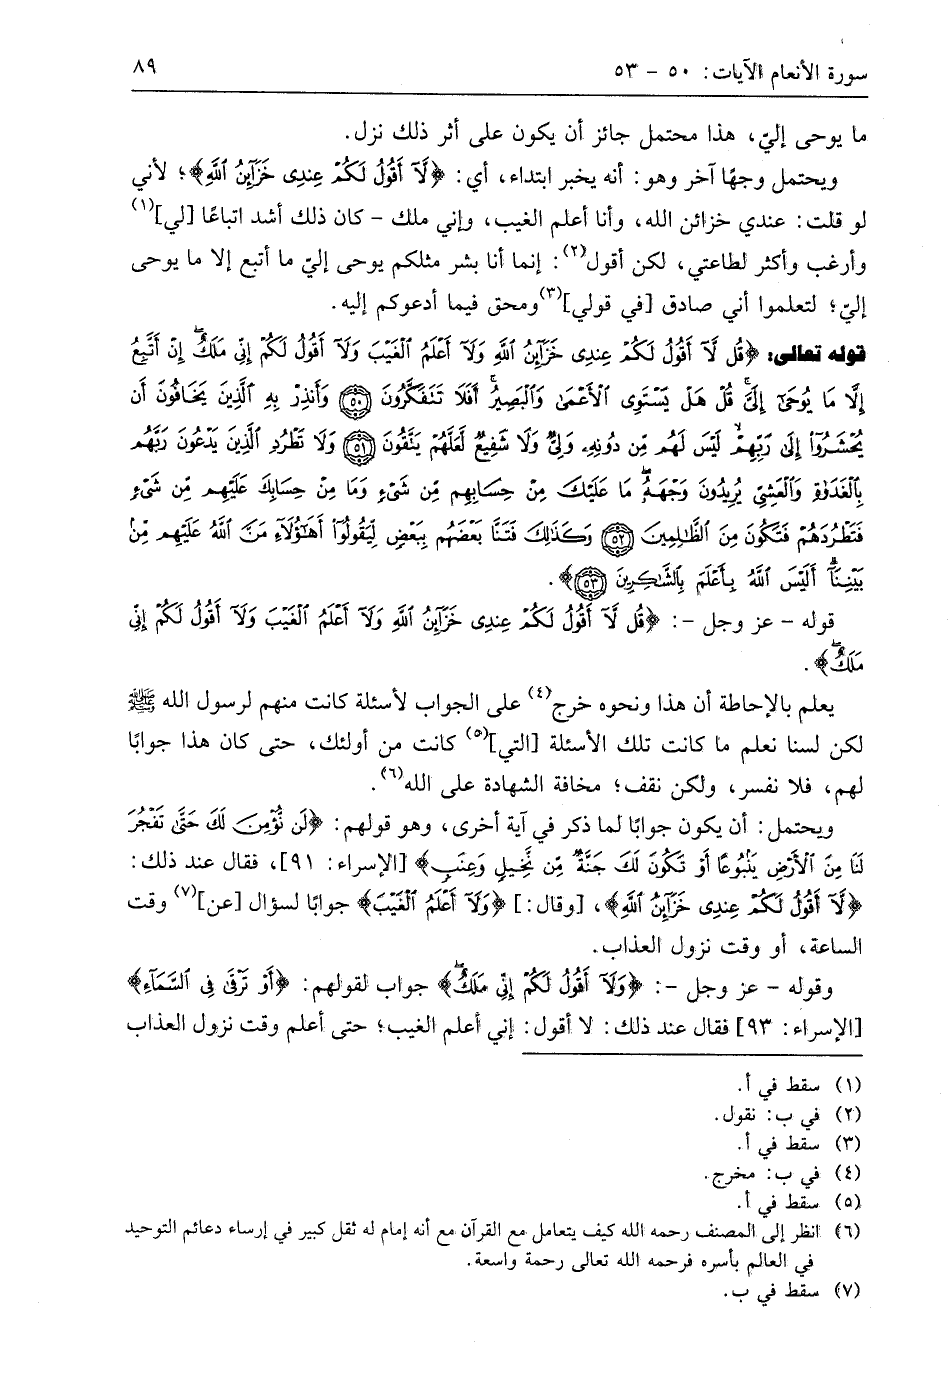 سورة الأنعام الآيات: ٥٠ - ٥٣
٨٩
ما يوحى إليّ، هذا محتمل جائز أن يكون على أثر ذلك نزل.
ويحتمل وجهًا آخر وهو: أنه يخبر ابتداء، أي: ﴿لَّآ أَقُولُ لَكُمْ عِندِى خَزَآئِنُ ٱللَّهِ﴾؛ لأني
لو قلت: عندي خزائن الله، وأنا أعلم الغيب، وإني ملك - كان ذلك أشد اتباعًا [لي](١)
وأرغب وأكثر لطاعتي، لكن أقول(٢): إنما أنا بشر مثلكم يوحى إليّ ما أتبع إلا ما يوحى
إليّ؛ لتعلموا أني صادق [في قولي](٣)ومحق فيما أدعوكم إليه.
قوله تعالى: ﴿قُل لَّآ أَقُولُ لَكُمْ عِندِى خَزَآئِنُ ٱللَّهِ وَلَآ أَعْلَمُ ٱلْغَيْبَ وَلَآ أَقُولُ لَكُمْ إِنِّى مَلَكٌ ۖ إِنْ أَتَّبِعُ
إِلَّا مَا يُوحَىٰٓ إِلَىَّ ۚ قُلْ هَلْ يَسْتَوِى ٱلْأَعْمَىٰ وَٱلْبَصِيرُ ۚ أَفَلَا تَتَفَكَّرُونَ ۝٥٠ وَأَنذِرْ بِهِ ٱلَّذِينَ يَخَافُونَ أَن
يُحْشَرُوٓا۟ إِلَىٰ رَبِّهِمْ ۙ لَيْسَ لَهُم مِّن دُونِهِۦ وَلِىٌّ وَلَا شَفِيعٌ لَّعَلَّهُمْ يَتَّقُونَ ۝٥١ وَلَا تَطْرُدِ ٱلَّذِينَ يَدْعُونَ رَبَّهُم
بِٱلْغَدَوٰةِ وَٱلْعَشِىِّ يُرِيدُونَ وَجْهَهُۥ ۖ مَا عَلَيْكَ مِنْ حِسَابِهِم مِّن شَىْءٍ وَمَا مِنْ حِسَابِكَ عَلَيْهِم مِّن شَىْءٍ
فَتَطْرُدَهُمْ فَتَكُونَ مِنَ ٱلظَّٰلِمِينَ ۝٥٢ وَكَذَٰلِكَ فَتَنَّا بَعْضَهُم بِبَعْضٍ لِّيَقُولُوٓا۟ أَهَٰٓؤُلَآءِ مَنَّ ٱللَّهُ عَلَيْهِم مِّنۢ
بَيْنِنَآ ۗ أَلَيْسَ ٱللَّهُ بِأَعْلَمَ بِٱلشَّٰكِرِينَ ۝٥٣﴾.
قوله - عز وجل -: ﴿قُل لَّآ أَقُولُ لَكُمْ عِندِى خَزَآئِنُ ٱللَّهِ وَلَآ أَعْلَمُ ٱلْغَيْبَ وَلَآ أَقُولُ لَكُمْ إِنِّى
مَلَكٌ ۖ﴾.
يعلم بالإحاطة أن هذا ونحوه خرج(٤) على الجواب لأسئلة كانت منهم لرسول الله ﷺ
لكن لسنا نعلم ما كانت تلك الأسئلة [التي](٥) كانت من أولئك، حتى كان هذا جوابًا
لهم، فلا نفسر، ولكن نقف؛ مخافة الشهادة على الله(٦).
ويحتمل: أن يكون جوابًا لما ذكر في آية أخرى، وهو قولهم: ﴿لَن نُّؤْمِنَ لَكَ حَتَّىٰ تَفْجُرَ
لَنَا مِنَ ٱلْأَرْضِ يَنۢبُوعًا أَوْ تَكُونَ لَكَ جَنَّةٌ مِّن نَّخِيلٍ وَعِنَبٍ﴾ [الإسراء: ٩١]، فقال عند ذلك:
﴿لَّآ أَقُولُ لَكُمْ عِندِى خَزَآئِنُ ٱللَّهِ﴾، [وقال:] ﴿وَلَآ أَعْلَمُ ٱلْغَيْبَ﴾ جوابًا لسؤال [عن](٧) وقت
الساعة، أو وقت نزول العذاب.
وقوله - عز وجل -: ﴿وَلَآ أَقُولُ لَكُمْ إِنِّى مَلَكٌ ۖ﴾ جواب لقولهم: ﴿أَوْ تَرْقَىٰ فِى ٱلسَّمَآءِ﴾
[الإسراء: ٩٣] فقال عند ذلك: لا أقول: إني أعلم الغيب؛ حتى أعلم وقت نزول العذاب
(١) سقط في أ.
(٢) في ب: نقول.
(٣) سقط في أ.
(٤) في ب: مخرج.
(٥) سقط في أ.
(٦) انظر إلى المصنف رحمه الله كيف يتعامل مع القرآن مع أنه إمام له ثقل كبير في إرساء دعائم التوحيد
في العالم بأسره فرحمه الله تعالى رحمة واسعة.
(٧) سقط في ب.